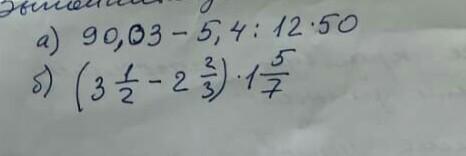 а) 90,03 - 5,4 : 12 · 50
б) (3 1/2 - 2 2/3) · 1 5/7